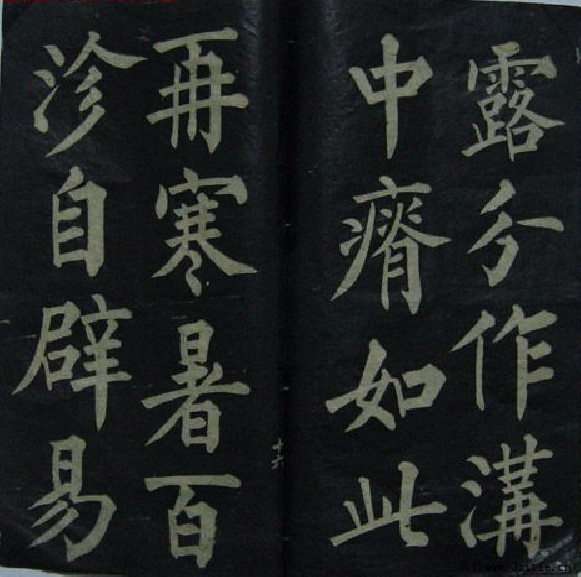 露分作溝
中瘠如此
十六
再寒暑百
沴自辟易